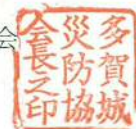 会
多賀城
災防協
会長之印